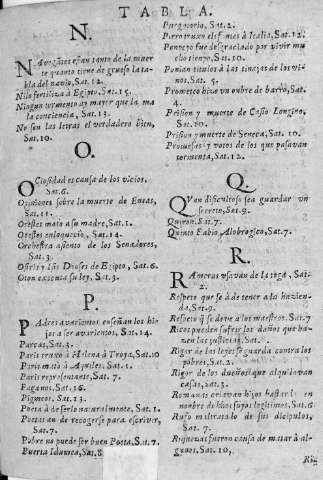 TABLA.
N.
Navegãtes estan tanto de la muer
te quanto tiene de grueso la ta-
bla del navio, Sat. 12.
Nilo fertiliza â Egipto, Sat. 15.
Ningun tormento ay mayor que la ma
la conciencia, Sat. 13.
No son las letras el verdadero bien,
Sat. 10.
O.
Ociosidad es causa de los vicios.
Sat. 6.
Opiniones sobre la muerte de Eneas,
Sat. 11.
Orestes mato a su madre, Sat. 1.
Orestes enloqueciò, Sat. 14.
Orchestra asiento de los Senadores,
Sat. 3.
Osiris y Isis Dioses de Egipto, Sat. 6.
Oton excusa su ley. Sat. 3.
P.
Padres avarientos enseñan los hi-
jos a ser avarientos, Sat. 14.
Parcas, Sat. 3.
Paris traxo à Helena à Troya, Sat. 10
Paris mató à Aquiles, Sat. 1.
Paris representante, Sat. 7.
Paganos, Sat. 16.
Pigmeos, Sat. 13.
Poeta à de serlo naturalmente, Sat. 1.
Poetas an de recogerse para escriver,
Sat. 7.
Pobre no puede ser buen Poeta, Sat. 7.
Puerta Idumea, Sat. 8
Purgatorio, Sat. 2.
Pirro truxo elefantes à Italia, Sat. 12.
Pompeyo fue desgraciado por vivir mu
cho tiempo, Sat. 10.
Ponian titulos à las tinajas de los vi-
nos, Sat. 5.
Prometeo hizo un onbre de barro, Sat.
4.
Prision y muerte de Casio Longino,
Sat. 10.
Prision y muerte de Seneca, Sat. 10.
Promesas y votos de los que pasavan
tormenta, Sat. 12.
Q.
Quan dificultoso sea guardar un
secreto, Sat. 9.
Quiron, Sat. 7.
Quinto Fabio, Alobrogico, Sat. 7.
R.
Rameras usavan de la toga, Sat.
2.
Respeto que se à de tener a la hazien-
da, Sat. 9.
Respeto q̃ se deve a los maestros, Sat. 7
Ricos pueden sufrir los daños que ha-
zen las justicias, Sat.
Rigor de las leyes se guarda contra los
pobres, Sat. 2.
Rigor de los dueños que alquilavan
casas, Sat. 3.
Romanas criavan hijos bastardos en
nombre de hijos suyos legitimos, Sat. 6.
Rufo maltratado de sus dicipulos,
Sat. 7.
Riquezas fueron causa de matar à al-
gunos, Sat. 10,